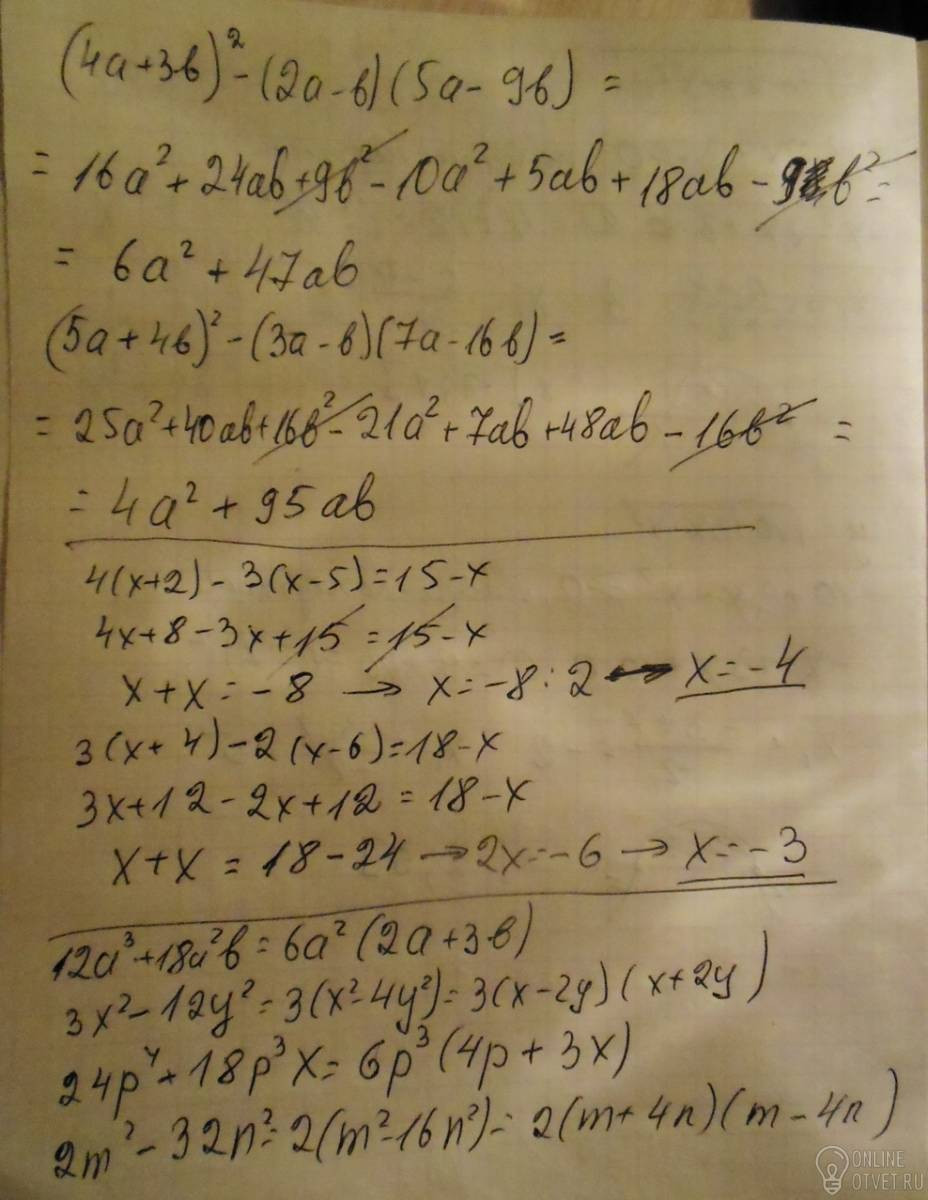 (4a+3b)² - (2a-b)(5a-9b) =
= 16a² + 24ab + 9b² - 10a² + 5ab + 18ab - 9b² =
= 6a² + 47ab
(5a+4b)² - (3a-b)(7a-16b) =
= 25a² + 40ab + 16b² - 21a² + 7ab + 48ab - 16b² =
= 4a² + 95ab
4(x+2) - 3(x-5) = 15-x
4x+8-3x+15 = 15-x
x+x = -8 → x = -8:2 → x = -4
3(x+4) - 2(x-6) = 18-x
3x+12-2x+12 = 18-x
x+x = 18-24 → 2x = -6 → x = -3
12a³+18a²b = 6a²(2a+3b)
3x²-12y² = 3(x²-4y²) = 3(x-2y)(x+2y)
24p⁴+18p³x = 6p³(4p+3x)
2m²-32n² = 2(m²-16n²) = 2(m+4n)(m-4n)
ONLINE
OTVET.RU